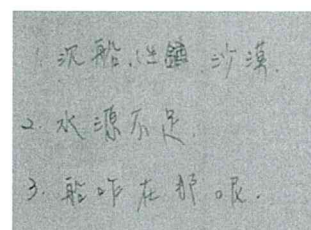 1. 沉船, 生鏽 沙漠.
2. 水源不足.
3. 船咋在那呢.